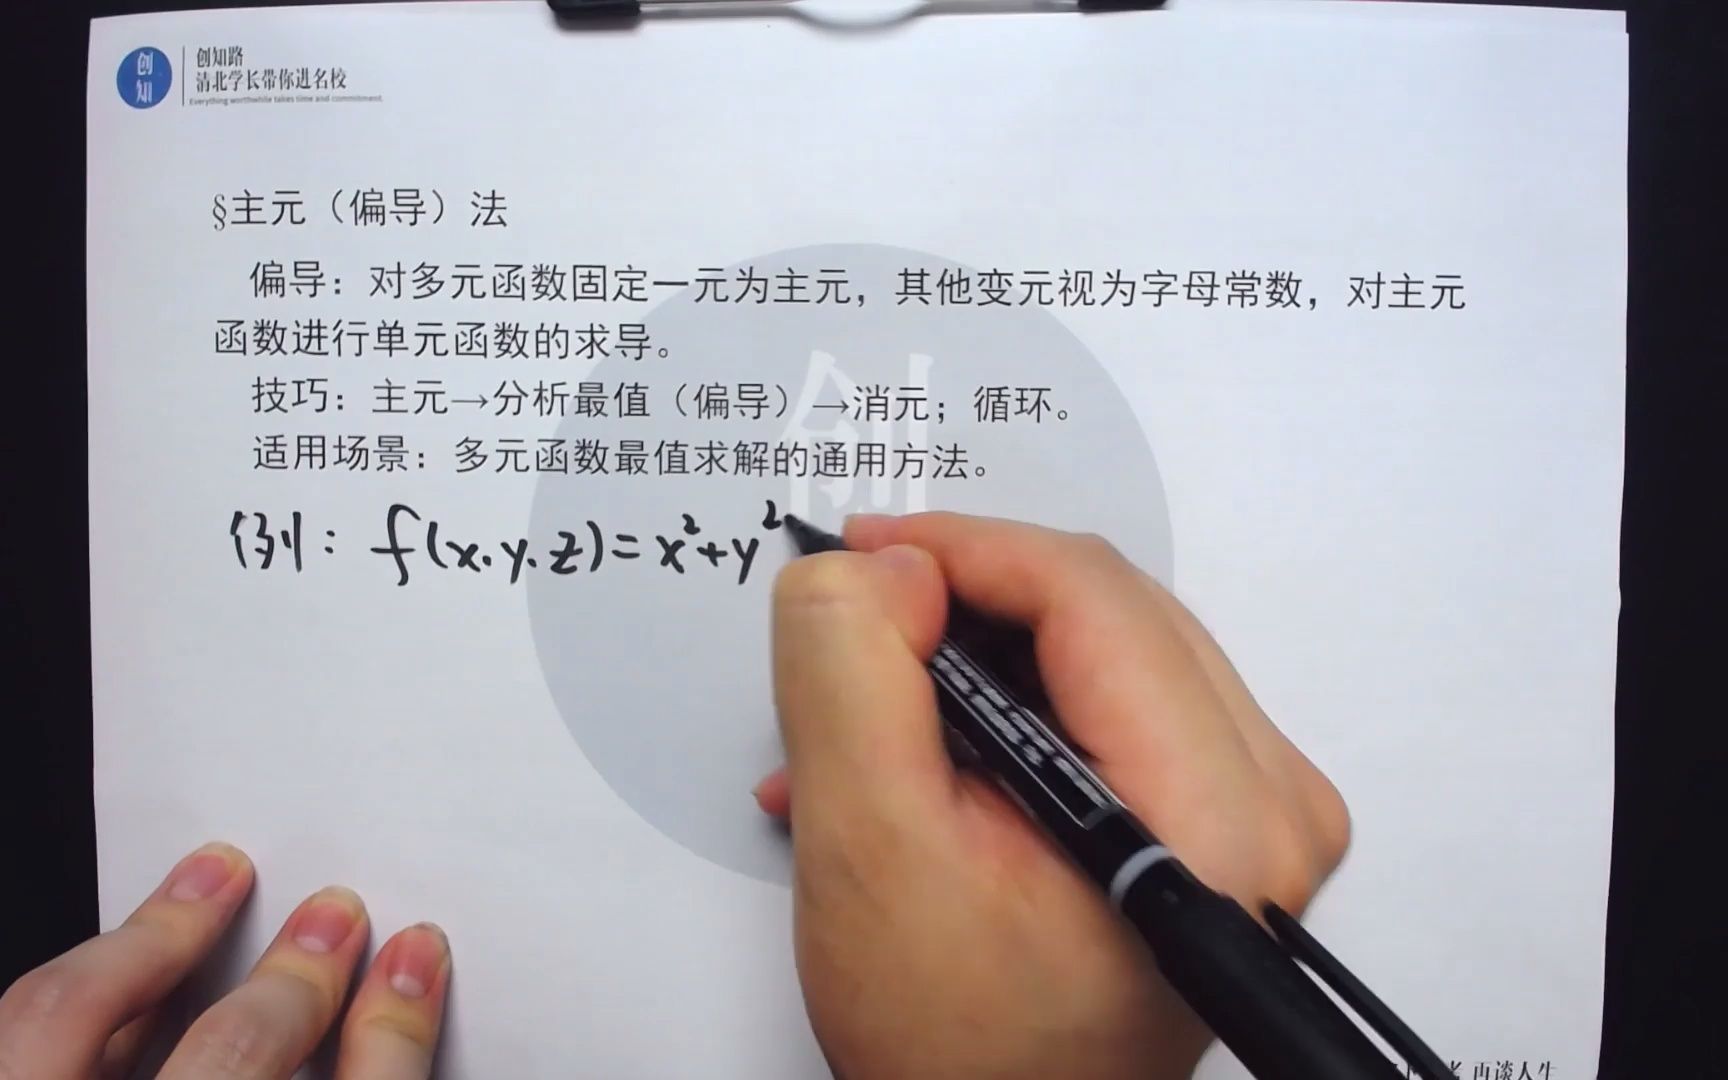 创知
创知路
清北学长带你进名校
Everything worthwhile takes time and commitment.
§主元（偏导）法
偏导：对多元函数固定一元为主元，其他变元视为字母常数，对主元
函数进行单元函数的求导。
技巧：主元→分析最值（偏导）→消元；循环。
适用场景：多元函数最值求解的通用方法。
创
例：f(x.y.z)=x²+y²
再谈人生